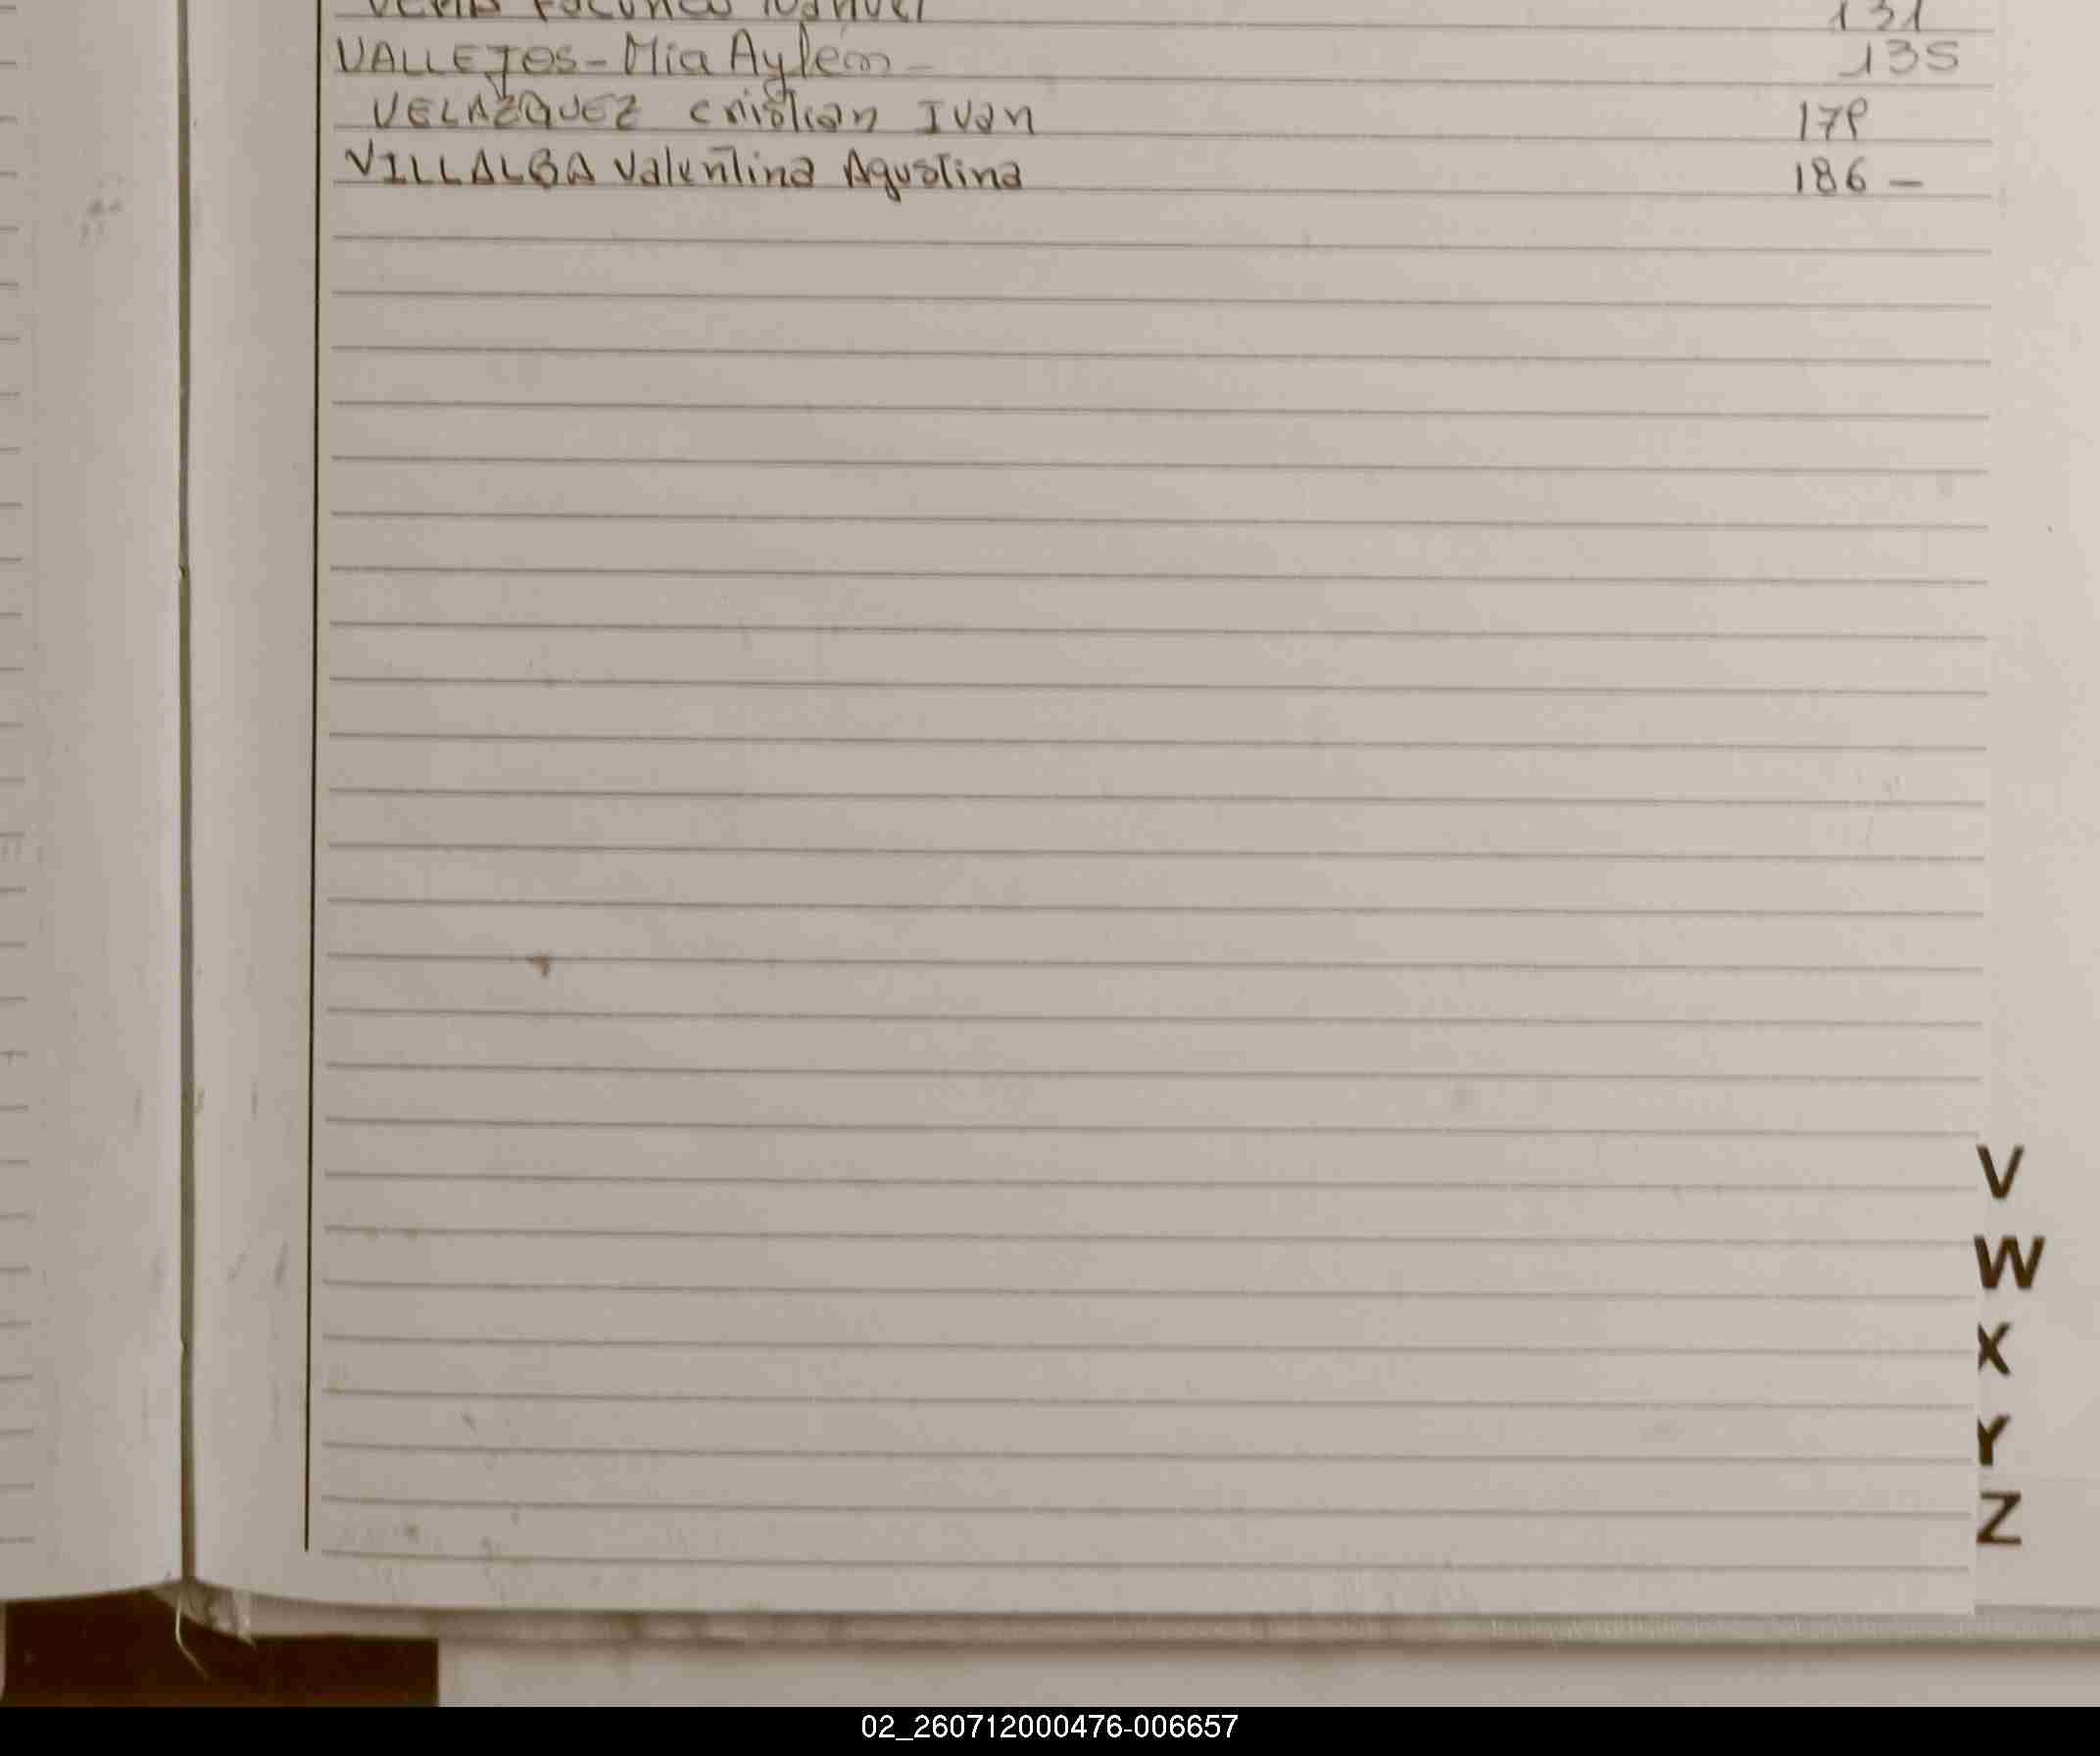 131
VALLEJOS - Mia Aylen - 135
VELAZQUEZ Cristian Ivan 179
VILLALBA Valentina Agustina 186 -
V
W
X
Y
Z
02_260712000476-006657